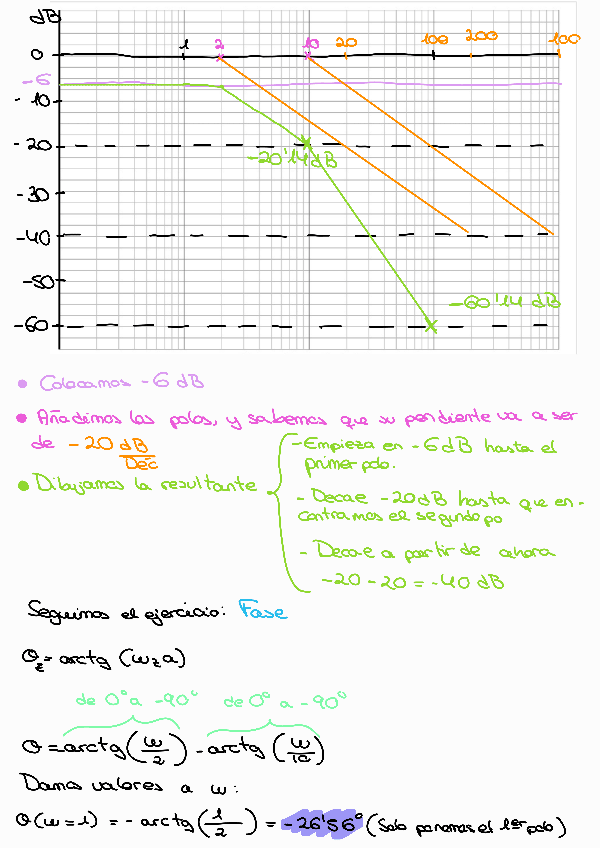 dB
1 2 10 20 100 200 1000
0
-6
-10
-20
-20'14 dB
-30
-40
-50
-60'14 dB
-60
• Colocamos -6 dB
• Añadimos los polos, y sabemos que su pendiente va a ser
de -20 dB/Dec
• Dibujamos la resultante
-Empieza en -6dB hasta el
primer polo.
- Decae -20dB hasta que en-
contramos el segundo po
- Decae a partir de ahora
-20-20 = -40 dB
Seguimos el ejercicio: Fase
θz = arctg (wza)
de 0° a -90° de 0° a -90°
θ = arctg (w/2) - arctg (w/10)
Damos valores a w:
θ(w=1) = - arctg(1/2) = -26'56° (Solo ponemos el 1er polo)